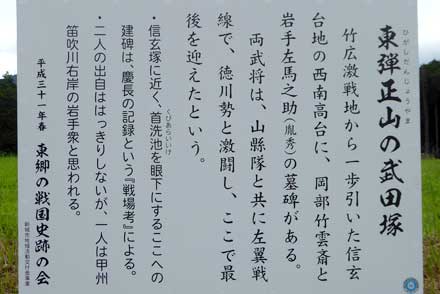 東弾正山の武田塚
ひがしだんじょうやま
竹広激戦地から一歩引いた信玄
台地の西南高台に、岡部竹雲斎と
岩手左馬之助(胤秀)の墓碑がある。
両武将は、山縣隊と共に左翼戦
線で、徳川勢と激闘し、ここで最
後を迎えたという。
・信玄塚に近く、首洗池を眼下にするここへの
くびあらいいけ
建碑は、慶長の記録という『戦場考』による。
・二人の出自ははっきりしないが、一人は甲州
笛吹川右岸の岩手衆と思われる。
平成三十一年春 東郷の戦国史跡の会
新城市地域活動交付金事業